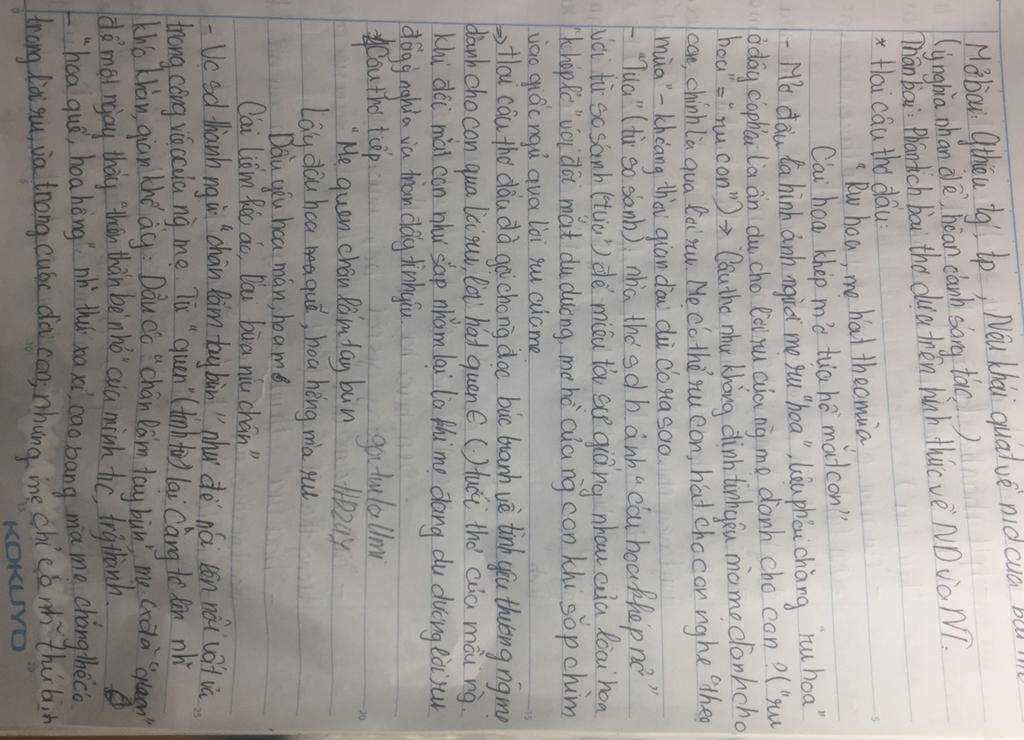 Mở bài: Giới thiệu tg, tp, Nêu khái quát về nd của bài thơ
(ý nghĩa nhan đề, hoàn cảnh sáng tác...)
Thân bài: Phân tích bài thơ dựa trên hình thức về ND và NT.
* Hai câu thơ đầu:
"Ru hoa, mẹ hát theo mùa
Cái hoa khép mở tựa hồ mắt con"
- Mở đầu là hình ảnh người mẹ ru "hoa", liệu phải chăng "ru hoa"
ở đây có phải là ẩn dụ cho lời ru của ng mẹ dành cho con? ("ru
hoa" = "ru con") → Câu thơ như khẳng định tình yêu mà mẹ dành cho
con, chính là qua lời ru. Mẹ có thể ru con, hát cho con nghe "theo
mùa" - khoảng thời gian dài dù có ra sao.
- "Tựa" (từ so sánh), nhà thơ sd h. ảnh "cái hoa khép nở"
với từ so sánh ("tựa") để miêu tả sự giống nhau của loài hoa
"khép nở" với đôi mắt dịu dàng, mơ hồ của ng con khi sắp chìm
vào giấc ngủ qua lời ru của mẹ
⇒ Hai câu thơ đầu đã gợi cho ng đọc bức tranh về tình yêu thương ng mẹ
dành cho con qua lời ru, lời hát quen € ( ) tuổi thơ của mỗi ng.
Khi đôi mắt con như sắp nhắm lại là khi mẹ đang du dương lời ru
đầy ý nghĩa và tràn đầy tình yêu.
* Câu thơ tiếp:
"Mẹ quen chân lấm tay bùn
Lấy đâu hoa huệ, hoa hồng mà ru
Dẫu yêu hoa mận, hoa mơ
Cái liềm kéo áo, cái bừa níu chân"
- Vc sd thành ngữ "chân lấm tay bùn" như để nói lên nỗi vất vả
trong công việc của ng mẹ. Từ "quen" (tính từ) lại càng tô lên nh~
khó khăn, gian khổ ấy. Dẫu có "chân lấm tay bùn", mẹ cx đã "quen"
để một ngày thấy "thiên thần bé nhỏ" của mình trưởng thành.
- "hoa quế, hoa hồng" nh~ thứ xa xỉ, cao sang mà mẹ chẳng thể có
trong lời ru, và trong cuộc đời con, nhưng mẹ chỉ có nh~ thứ bình
KOKUYO